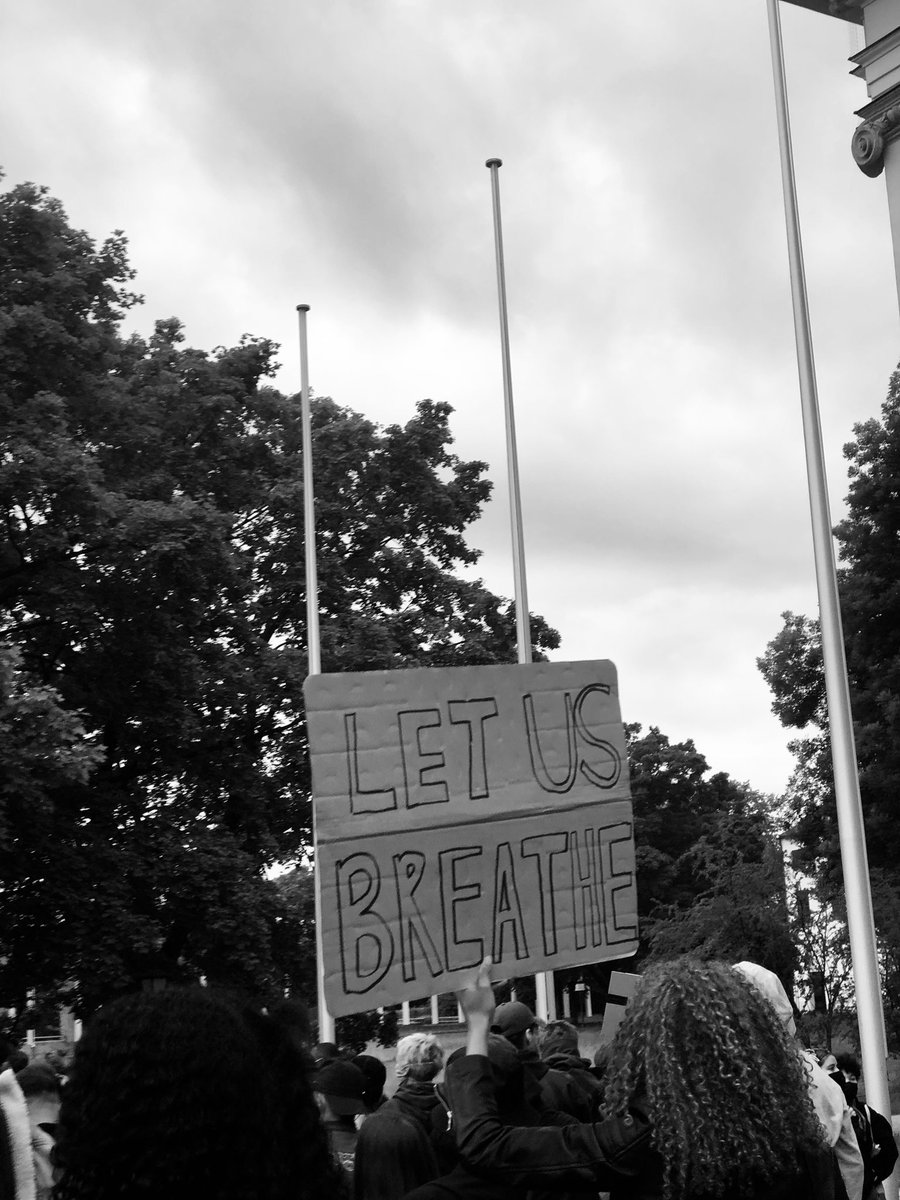 LET US
BREATHE